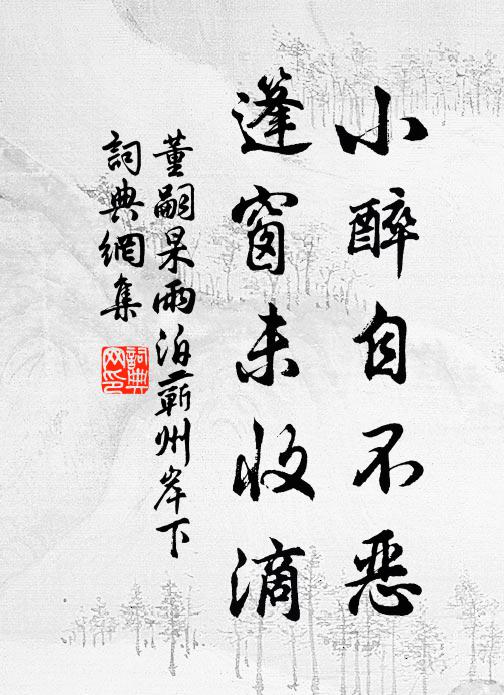 小醉自不惡
篷窗未收滴
董嗣杲雨泊蘄州岸下
詞典網集
詞典網印